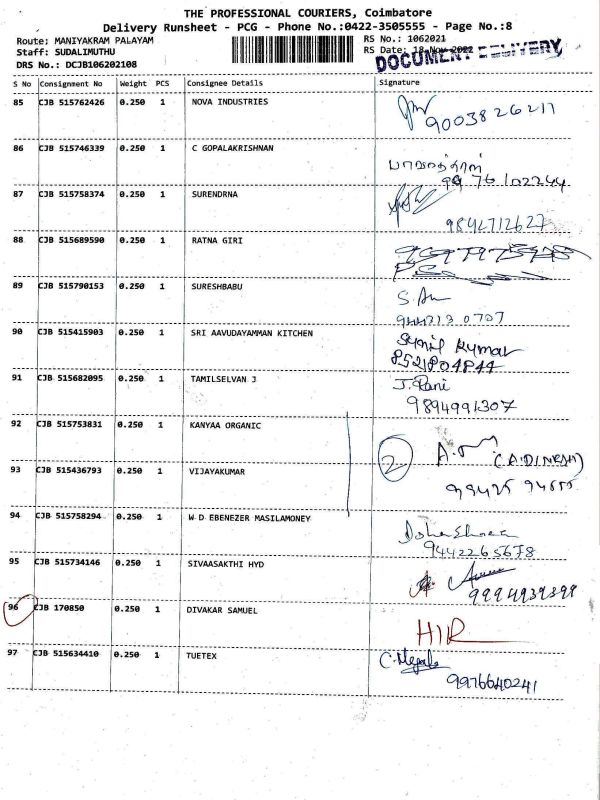 THE PROFESSIONAL COURIERS, Coimbatore
Delivery Runsheet - PCG - Phone No.:0422-3505555 - Page No.:8
Route: MANIYAKRAM PALAYAM
Staff: SUDALIMUTHU
DRS No.: DCJB106202108
RS No.: 1062021
RS Date: 18-Nov-2022
DOCUMENT DELIVERY
S No Consignment No Weight PCS Consignee Details Signature
85 CJB 515762426 0.250 1 NOVA INDUSTRIES
9003826211
86 CJB 515746339 0.250 1 C GOPALAKRISHNAN
87 CJB 515758374 0.250 1 SURENDRNA
9842712627
88 CJB 515689590 0.250 1 RATNA GIRI
89 CJB 515790153 0.250 1 SURESHBABU
90 CJB 515415903 0.250 1 SRI AAVUDAYAMMAN KITCHEN
Sunil Kumar
8521804844
91 CJB 515682095 0.250 1 TAMILSELVAN J
J. Rani
9894991307
92 CJB 515753831 0.250 1 KANYAA ORGANIC
2
(A.DINESH)
93 CJB 515436793 0.250 1 VIJAYAKUMAR
94 CJB 515758294 0.250 1 W D EBENEZER MASILAMONEY
9442265678
95 CJB 515734146 0.250 1 SIVAASAKTHI HYD
9994939399
96 CJB 170850 0.250 1 DIVAKAR SAMUEL
97 CJB 515634410 0.250 1 TUETEX
C. Megala
9976640241